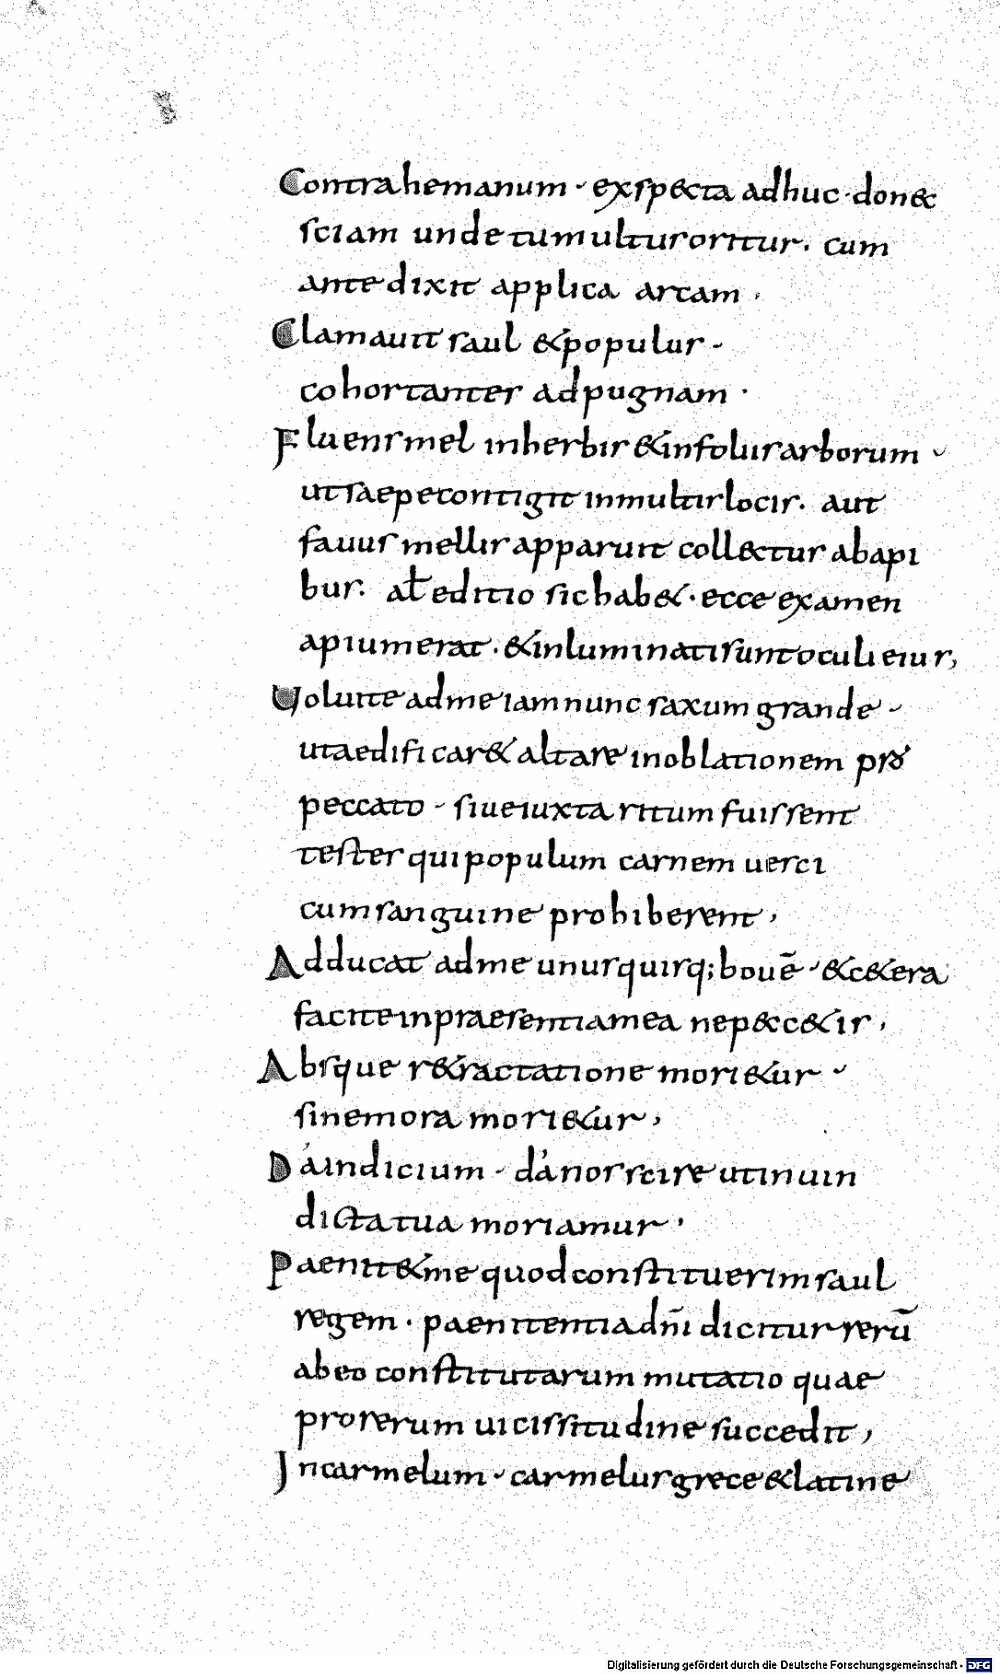 Contrahemanum · exspecta adhuc · donec
sciam unde tumultus oritur · cum
ante dixit applica arcam ·
Clamauit saul & populus ·
cohortantes ad pugnam ·
Fluens mel in herbis & in foliis arborum ·
ut saepe contigit in multis locis · aut
fauus mellis apparuit coll&tus ab api
bus · aƚ editio sic hab& · ecce examen
apium erat · & inluminati sunt oculi eius,
Uoluite ad me iam nunc saxum grande ·
ut aedificar& altare in oblationem pro
peccato · siue iuxta ritum fuissent
testes qui populum carnem uesci
cum sanguine prohiberent,
Adducat ad me unusquisq; bouē · & c&era
facite in praesentia mea ne pecc&is,
Absque r&ractatione mori&ur ·
sine mora mori&ur,
Dá indicium · dá nos scire ut in uin
dicta tua moriamur,
Paenit& me quod constituerim saul
regem · paenitentia dn̄i dicitur rerū
ab eo constitutarum mutatio quae
pro rerum uicissitudine succedit,
In carmelum · carmelus grece & latine
Digitalisierung gefördert durch die Deutsche Forschungsgemeinschaft · DFG